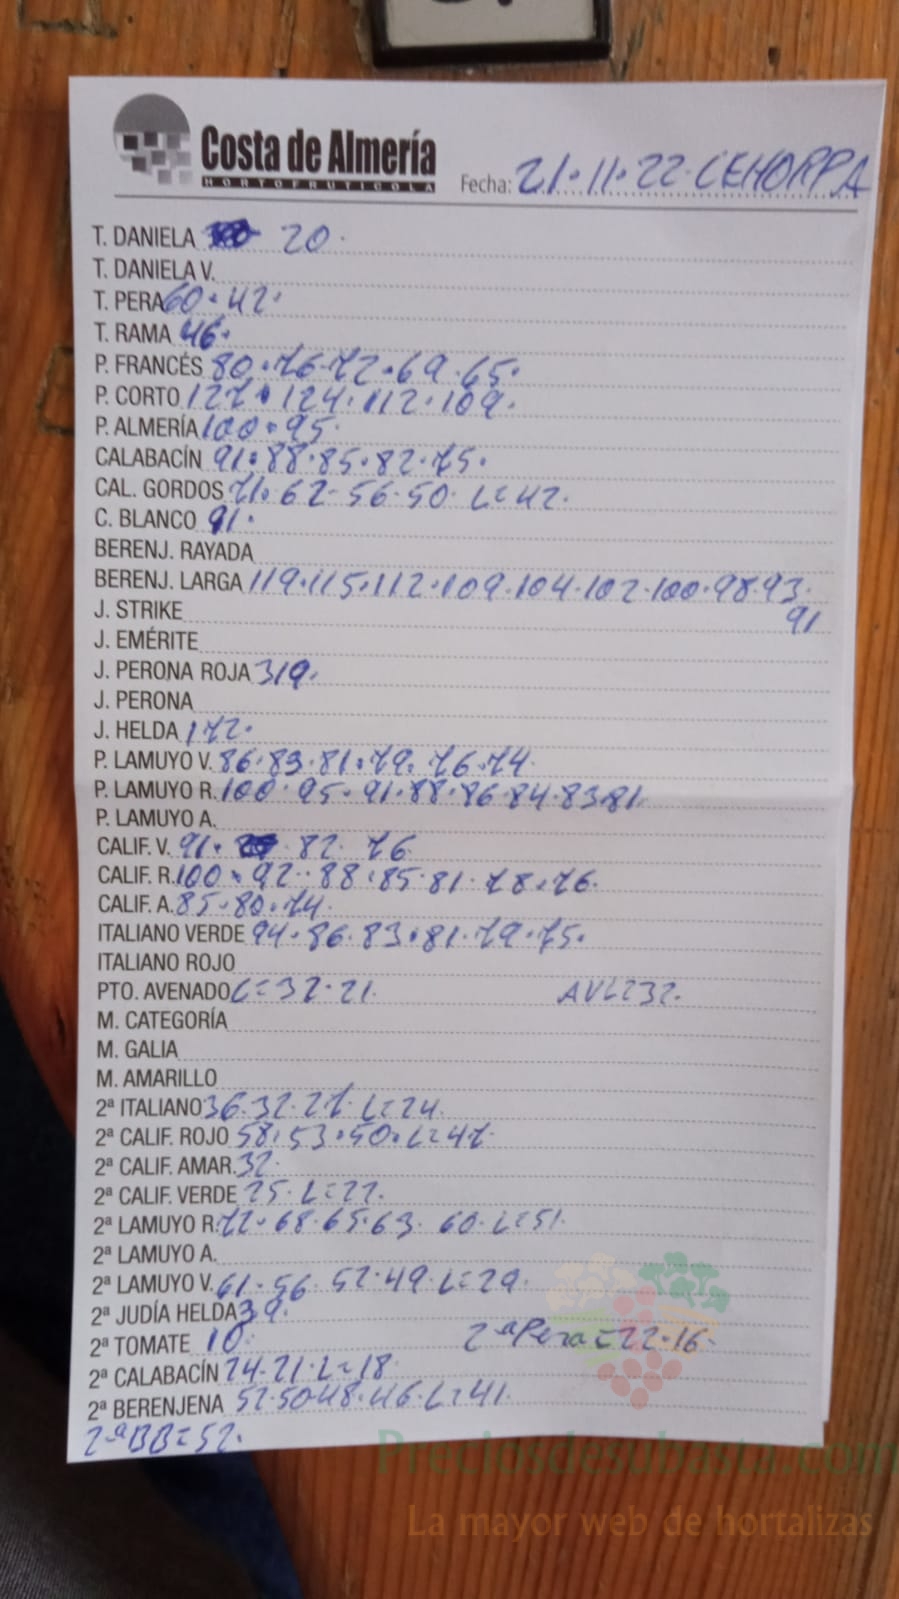 Costa de Almería
HORTOFRUTICOLA
Fecha: 21·11·22·CEHORPA
T. DANIELA 20·
T. DANIELA V.
T. PERA 60·42·
T. RAMA 46·
P. FRANCÉS 80·76·72·69·65·
P. CORTO 127·124·112·109·
P. ALMERÍA 100·95·
CALABACÍN 91·88·85·82·75·
CAL. GORDOS 71·62-56·50· L=42·
C. BLANCO 91·
BERENJ. RAYADA
BERENJ. LARGA 119·115·112·109·104·102·100·98·93·
91
J. STRIKE
J. EMÉRITE
J. PERONA ROJA 319·
J. PERONA
J. HELDA 172·
P. LAMUYO V. 86·83·81·79·76·74·
P. LAMUYO R. 100·95·91·88·86·84·83·81·
P. LAMUYO A.
CALIF. V. 91· 82· 76
CALIF. R. 100·92··88·85·81·78·76·
CALIF. A. 85·80·74·
ITALIANO VERDE 94·86·83·81·79·75·
ITALIANO ROJO
PTO. AVENADO L=32·21· AVL=32·
M. CATEGORÍA
M. GALIA
M. AMARILLO
2ª ITALIANO 36·32·27· L=24·
2ª CALIF. ROJO 58·53·50·L=47·
2ª CALIF. AMAR. 32·
2ª CALIF. VERDE 25·L=22·
2ª LAMUYO R. 72·68·65·63· 60·L=51·
2ª LAMUYO A.
2ª LAMUYO V. 61·56· 52·49·L=29·
2ª JUDÍA HELDA 39·
2ª TOMATE 10· 2ªPera=22·16·
2ª CALABACÍN 24·21·L=18·
2ª BERENJENA 52·50·48·46·L=41·
2ªBB=52·
Preciosdesubasta.com
La mayor web de hortalizas